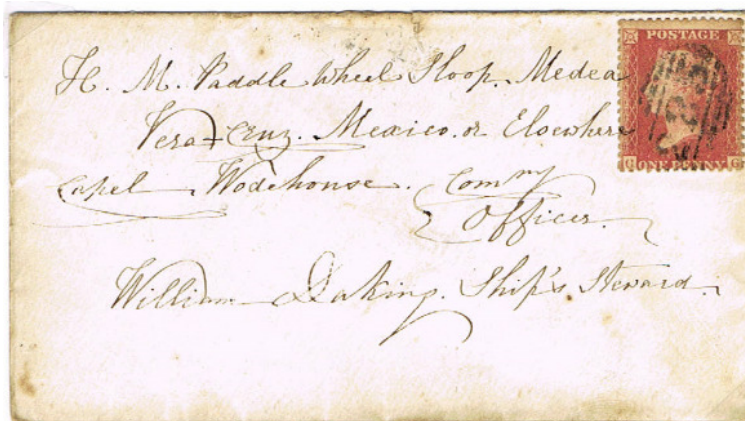 POSTAGE
H. M. Paddle Wheel Sloop. Medea
Vera-Cruz. Mexico. or Elsewhere
Capel Wodehouse. Commg
Officer.
William Daking. Ship's Steward.
G ONE PENNY G